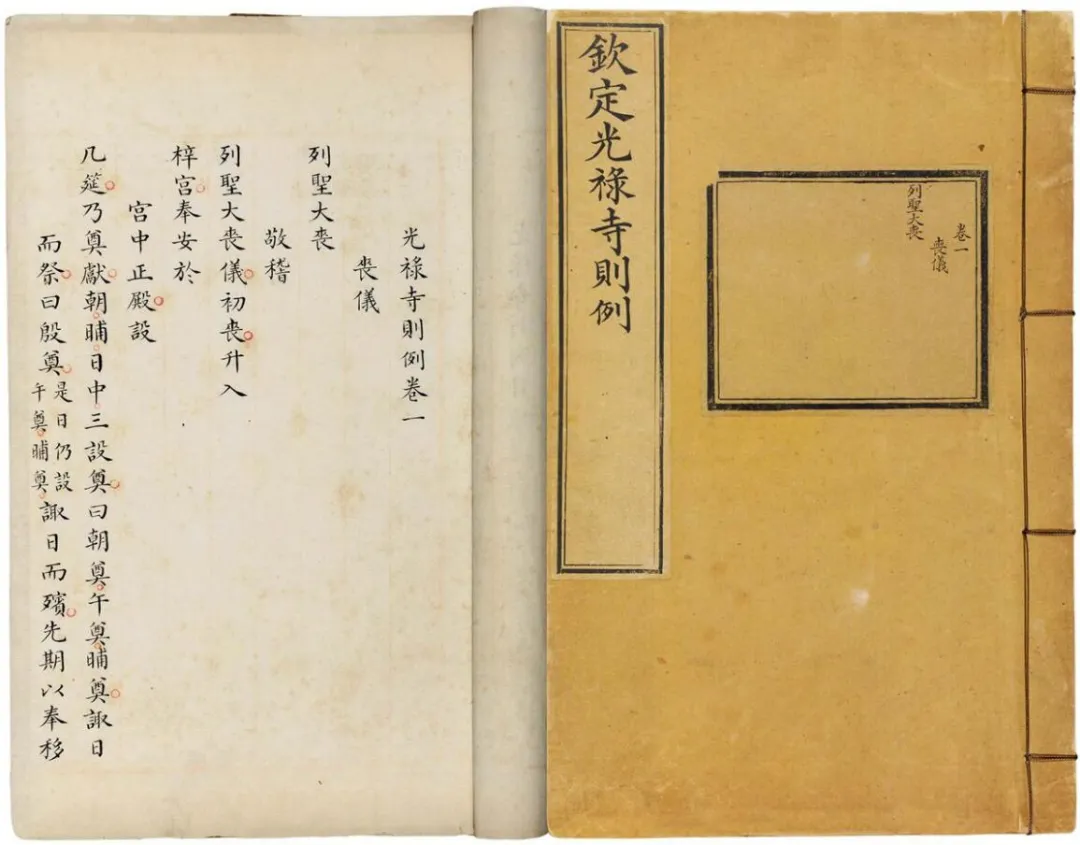 欽定光祿寺則例
卷一
喪儀
列聖大喪
光祿寺則例卷一
喪儀
列聖大喪
敬稽
列聖大喪儀初喪升入
梓宮奉安於
宮中正殿設
几筵乃奠獻朝晡日中三設奠曰朝奠午奠晡奠諏日
而祭曰殷奠是日仍設午奠晡奠諏日而殯先期以奉移